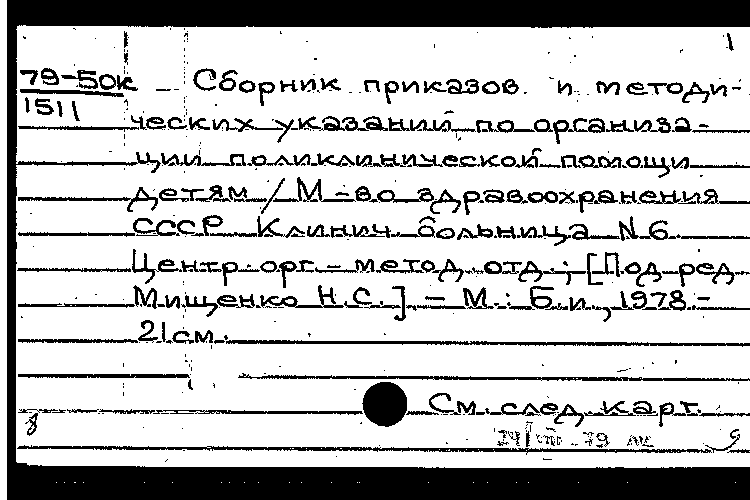 1
79-50к Сборник приказов и методи-
1511
ческих указаний по организа-
ции поликлинической помощи
детям / М-во здравоохранения
СССР Клинич. больница N 6.
Центр. орг.- метод. отд.; [Под ред
Мищенко Н.С.]. - М.: Б.и., 1978.-
21см.
См. след. карт.
8
79